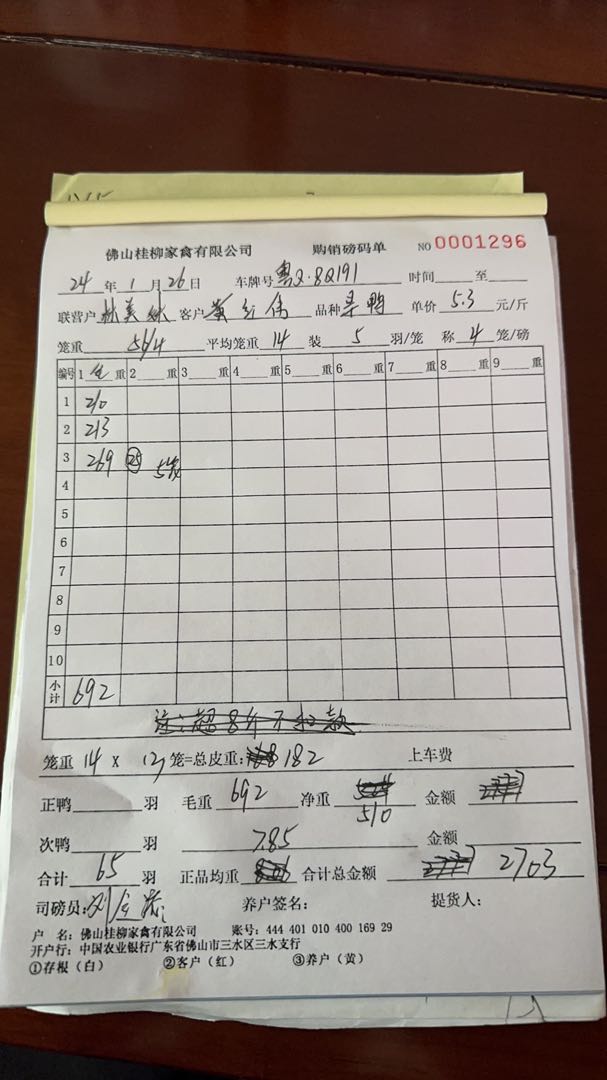 佛山桂柳家禽有限公司 购销磅码单 NO 0001296
24 年 1 月 26 日 车牌号 粤Q·8Q191 时间 至
联营户 林美 客户 黄 伟 品种 鸭 单价 5.3 元/斤
笼重 56/4 平均笼重 14 装 5 羽/笼 称 4 笼/磅
编号 1 重 2 重 3 重 4 重 5 重 6 重 7 重 8 重 9 重
1 210
2 213
3 269 25 5
4
5
6
7
8
9
10
小计 692
注：超8斤不扣款
笼重 14 x 13 笼=总皮重: 182 上车费
正鸭 羽 毛重 692 净重 510 金额
次鸭 羽 7.85 金额
合计 65 羽 正品均重 合计总金额 2703
司磅员: 刘 养户签名: 提货人:
户 名: 佛山桂柳家禽有限公司 账号: 444 401 010 400 169 29
开户行: 中国农业银行广东省佛山市三水区三水支行
①存根（白） ②客户（红） ③养户（黄）